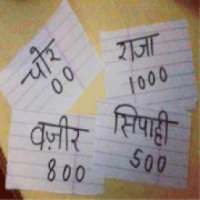 चोर
00
राजा
1000
वज़ीर
800
सिपाही
500